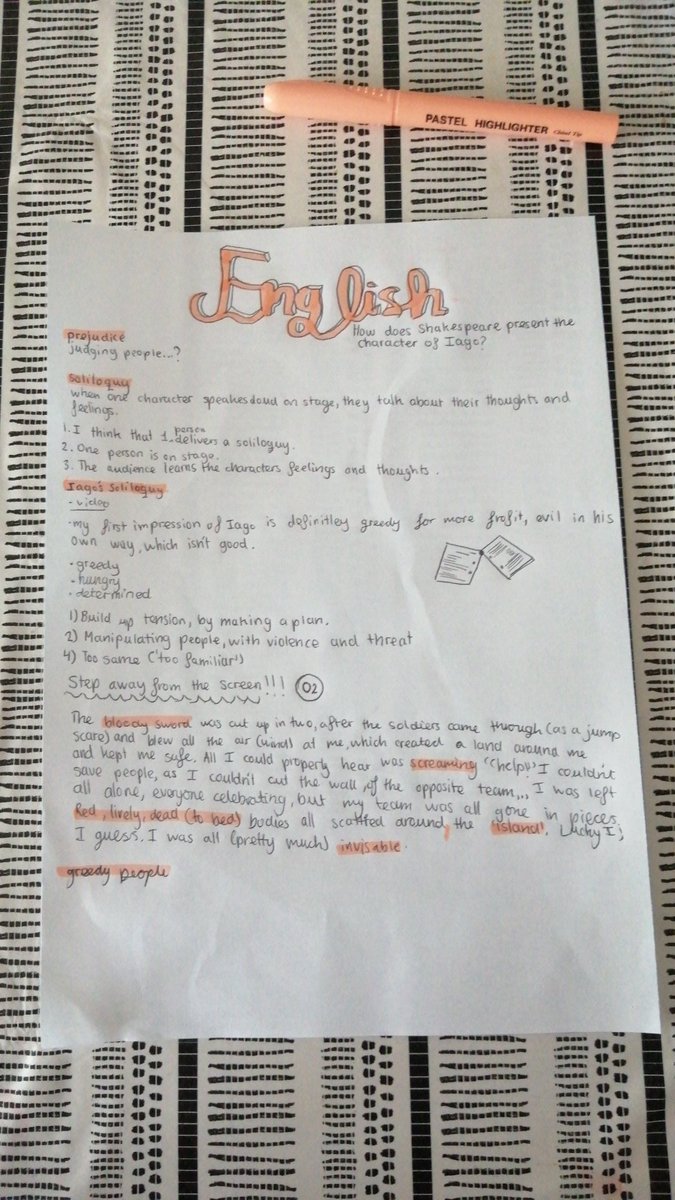 PASTEL HIGHLIGHTER Chisel Tip
English
How does Shakespeare present the
character of Iago?
prejudice
judging people...?
soliloquy
when one character speakes loud on stage, they talk about their thoughts and
feelings.
1. I think that 1 person delivers a soliloguy.
2. One person is on stage.
3. The audience learns the characters feelings and thoughts.
Iago's Soliloquy
- video
·my first impression of Iago is definitley greedy for more profit, evil in his
own way, which isn't good.
·greedy
·hungry
·determined
1) Build up tension, by making a plan.
2) Manipulating people, with violence and threat
4) Too same ('too familiar')
Step away from the screen!!! 02
The bloody sword was cut up in two, after the soldiers came through (as a jump
scare) and blew all the air (wind) at me, which created a land around me
and kept me safe. All I could properly hear was screaming "help!" I couldn't
save people, as I couldn't cut the wall of the opposite team... I was left
all alone, everyone celebrating, but my team was all gone in pieces.
Red, lively, dead (to bed) bodies all scattred around, the 'island'. Lucky I;
I guess. I was all (pretty much) invisable.
greedy people